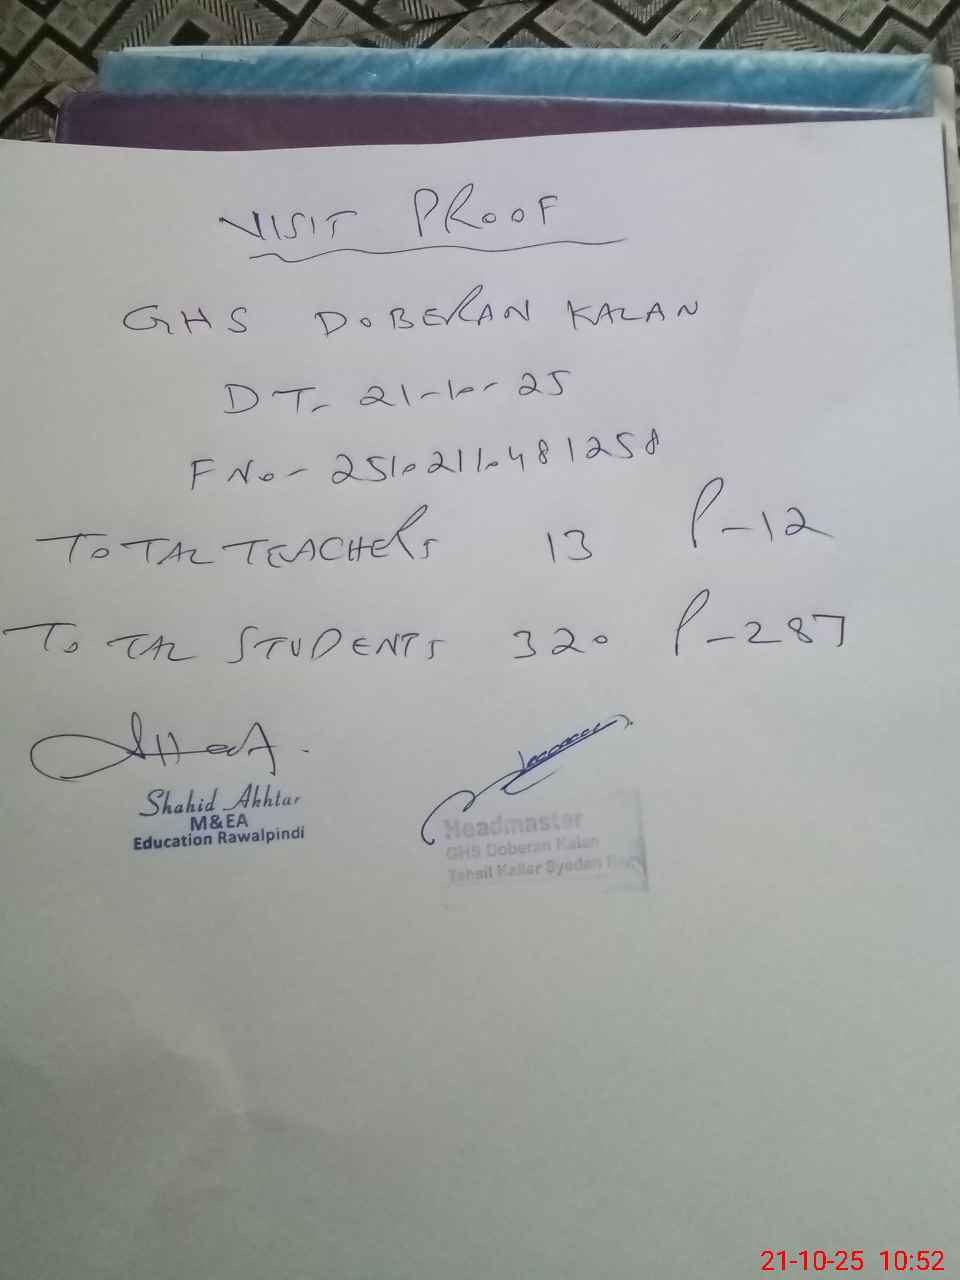 VISIT PROOF
GHS DOBERAN KALAN
DT- 21-10-25
F No- 25102110481258
TOTAL TEACHERS 13 P-12
TOTAL STUDENTS 320 P-287
Shahid Akhtar
M&EA
Education Rawalpindi
Headmaster
GHS Doberan Kalan
Tehsil Kallar Syedan
21-10-25 10:52